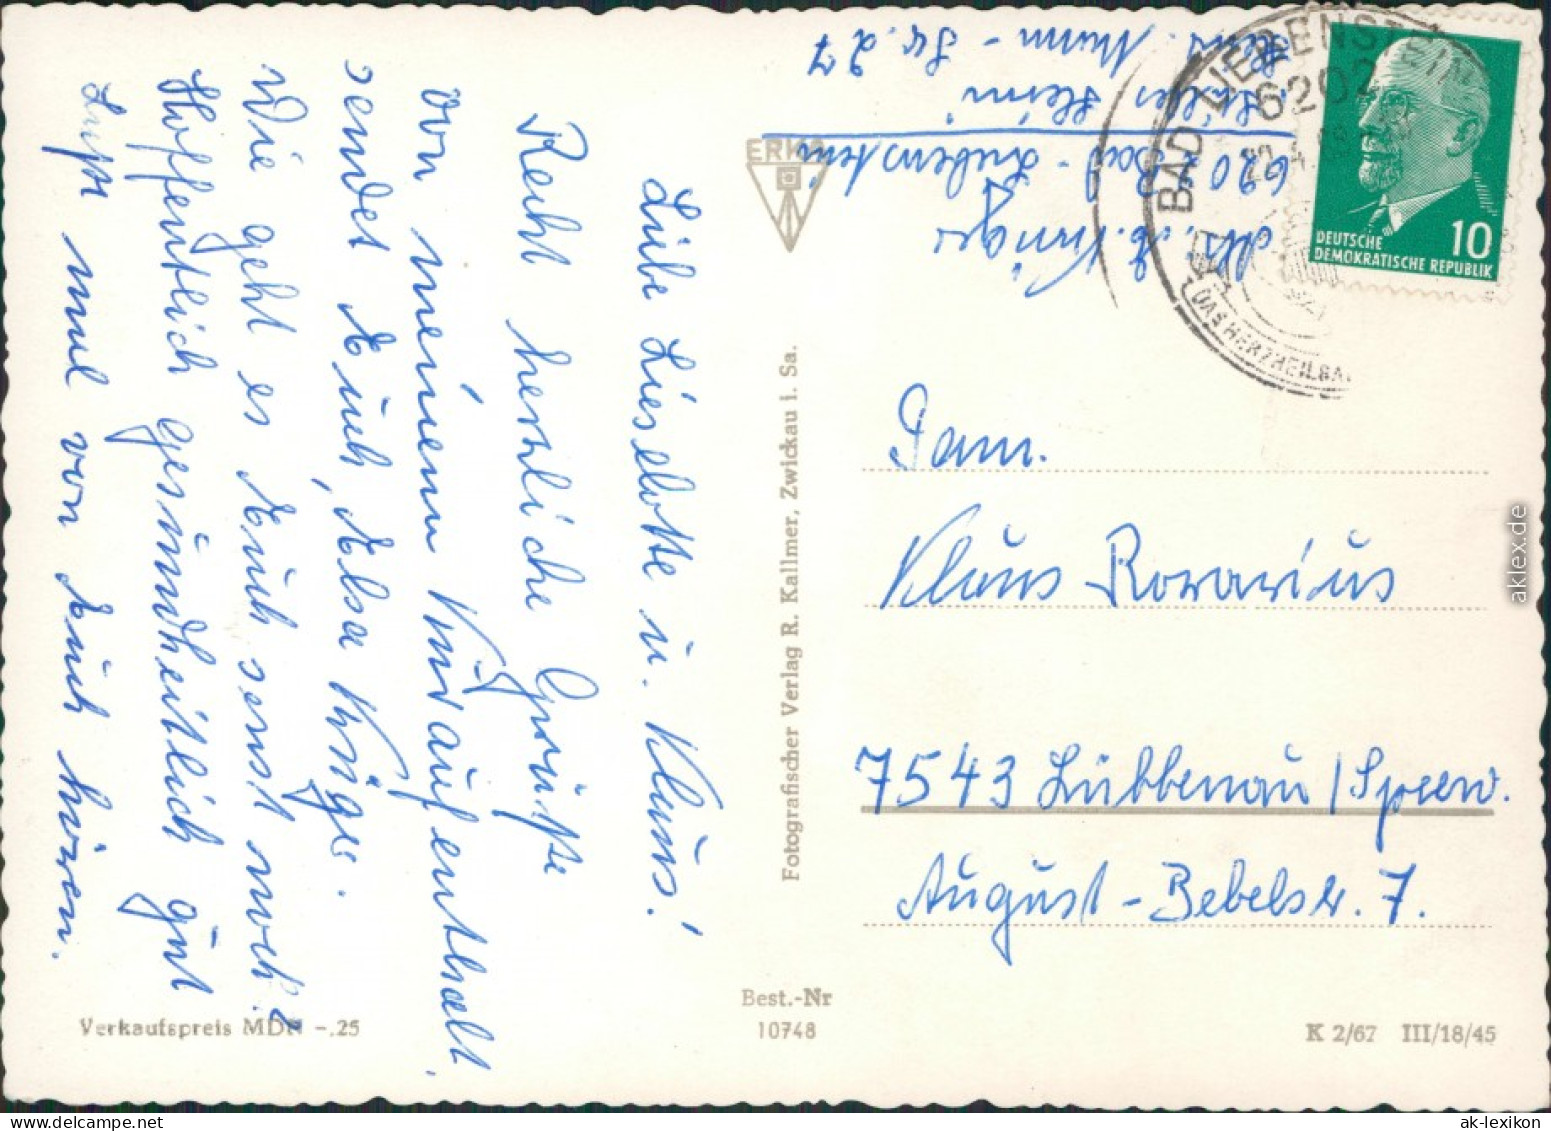 Liebe Lieselotte u. Klaus!
Recht herzliche Grüße
von meinem Kuraufenthalt
sendet Euch, Elsa Krüger.
Wie geht es Euch sonst noch?
Hoffentlich gesundheitlich gut
Laßt mal von Euch hören.
Abs. E. Krüger
6202 Bad-Liebenstein
Heim
27
ERKA
Fotografischer Verlag R. Kallmer, Zwickau i. Sa.
BAD LIEBENSTEIN
6202
22.4.
DAS HERZHEILBA
DEUTSCHE
DEMOKRATISCHE REPUBLIK
10
Fam.
Klaus Rovarius
7543 Lübbenau / Spreew.
August-Bebelstr. 7.
Verkaufspreis MDN -.25
Best.-Nr
10748
K 2/67 III/18/45
aklex.de
ak-lexikon